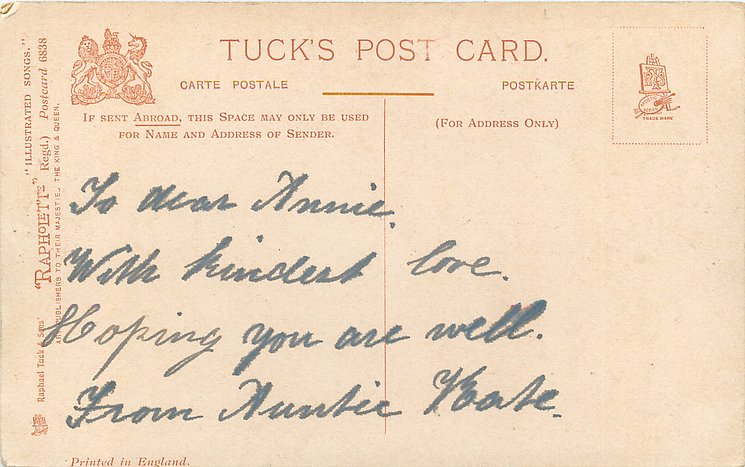 TUCK'S POST CARD.
CARTE POSTALE
POSTKARTE
IF SENT ABROAD, THIS SPACE MAY ONLY BE USED
FOR NAME AND ADDRESS OF SENDER.
(FOR ADDRESS ONLY)
TRADE MARK
"ILLUSTRATED SONGS."
"RAPHOLETTE" Regd.) Postcard 6838
Raphael Tuck & Sons'
TO THEIR MAJESTIES THE KING & QUEEN.
To dear Annie.
With kindest love.
Hoping you are well.
From Auntie Kate.
Printed in England.